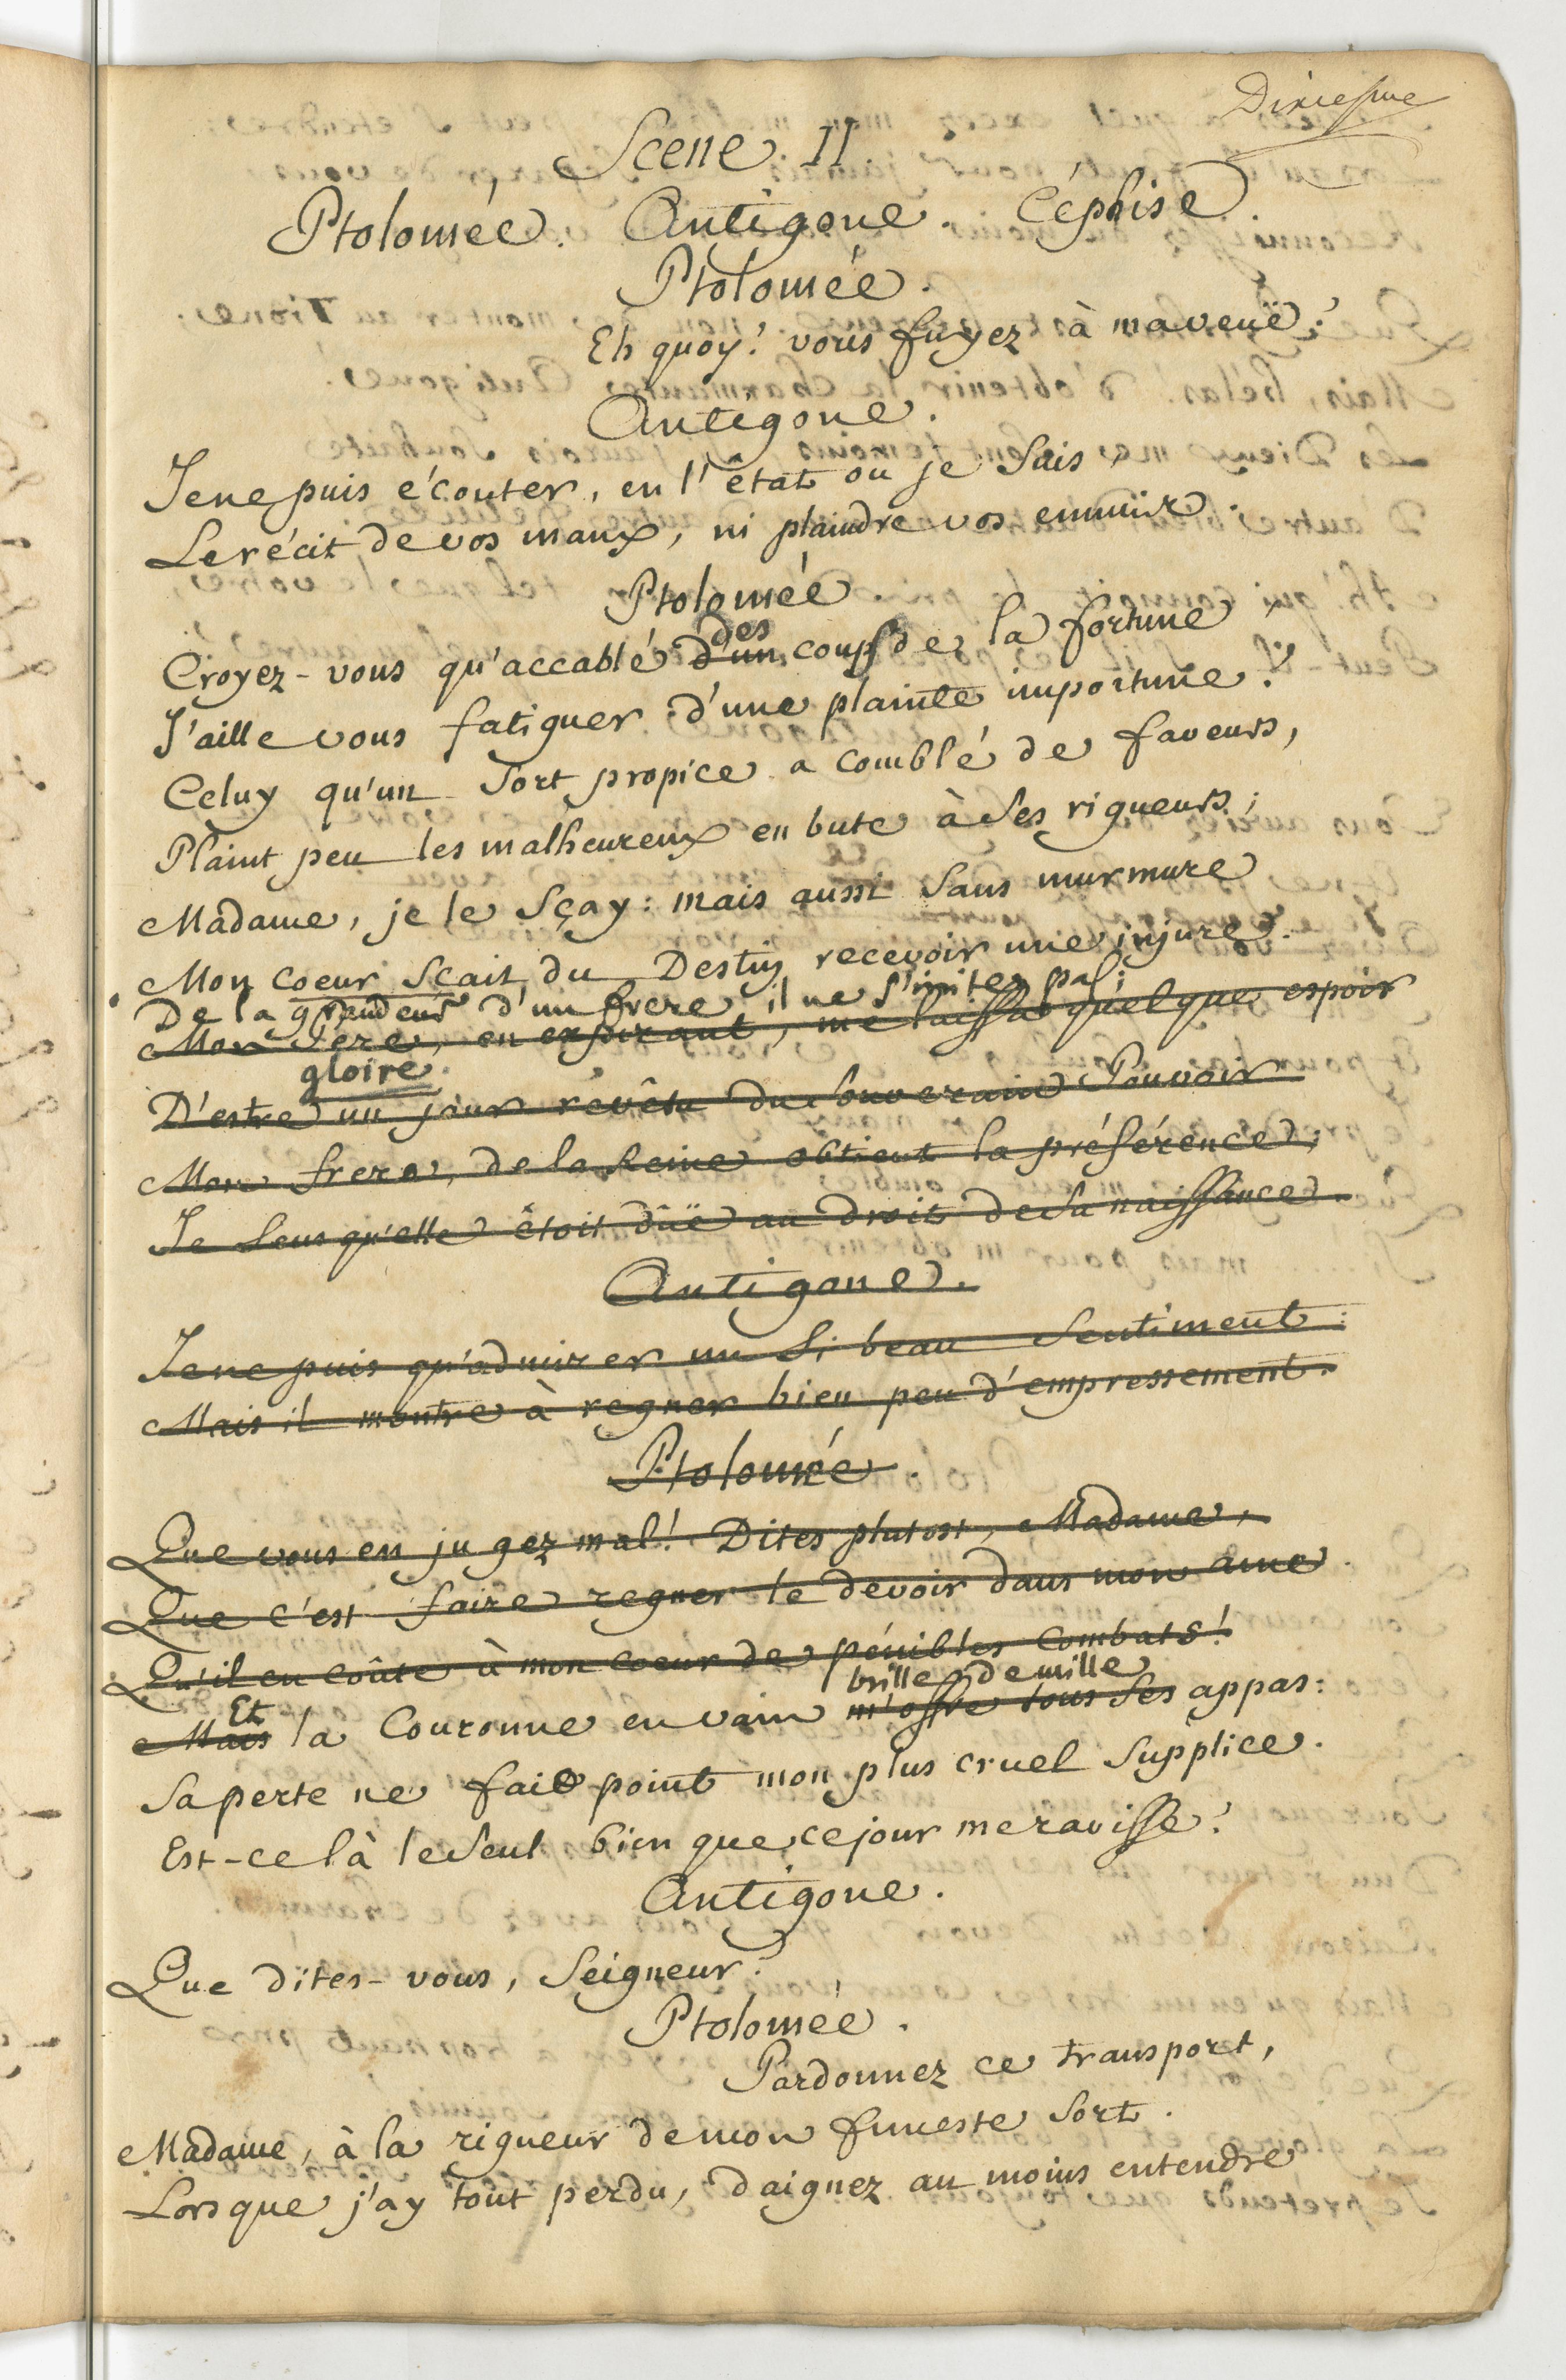 Dixiesme
Scene II.
Ptolomée. Antigone. Céphise.
Ptolomée.
Eh quoy! vous fuyez à ma veuë?
Antigone.
Je ne puis écouter, en l'état ou je suis,
Le récit de vos maux, ni plaindre vos ennuix.
Ptolomée
des
Croyez-vous qu'accablé d'un coups de la fortune
J'aille vous fatiguer d'une plainte importune?
Celuy qu'un sort propice a comblé de faveurs,
Plaint peu les malheureux en bute à ses rigueurs;
Madame, je le sçay: mais aussi sans murmure
Mon coeur sçait du Destin recevoir une injure.
De la grandeur d'un frere il ne s'irrite pas;
Mon Pere, en expirant, me laissa quelque espoir
gloire
D'estre un jour revêtu du souverain Pouvoir
Mon frere, de la Reine obtient la préférence;
Je sens qu'elle étoit dûë au droit de sa naissance.
Antigone.
Je ne puis qu'admirer un si beau sentiment:
Mais il montre à regner bien peu d'empressement.
Ptolomée.
Que vous en jugez mal! Dites plutost, Madame,
Que c'est faire regner le devoir dans mon ame.
Qu'il en coûte à mon coeur de pénibles combats!
Et brille de mille
Mais la Couronne en vain m'offre tous ses appas:
Sa perte ne fait point mon plus cruel supplice.
Est-ce là le seul bien que ce jour me ravisse?
Antigone.
Que dites-vous, Seigneur?
Ptolomée.
Pardonnez ce transport,
Madame, à la rigueur de mon funeste sort.
Lorsque j'ay tout perdu, daignez au moins entendre